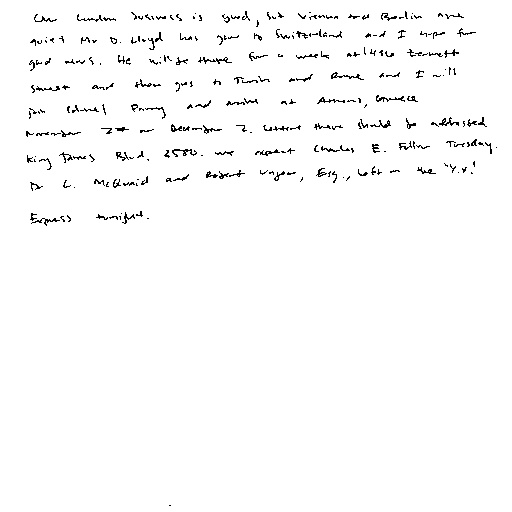 Our London business is good, but Vienna and Berlin are
quiet Mr D. Lloyd has gone to Switzerland and I hope for
good news. He will be there for a week at 1496 Zermott
Street and then goes to Turin and Rome and I will
join Colonel Parry and arrive at Athens, Greece
November 27th or December 2. Letters there should be addressed
King James Blvd. 3580. We expect Charles E. Fuller Tuesday.
Dr L. McQuaid and Robert Unger, Esq., left on the "Y.X."
Express tonight.